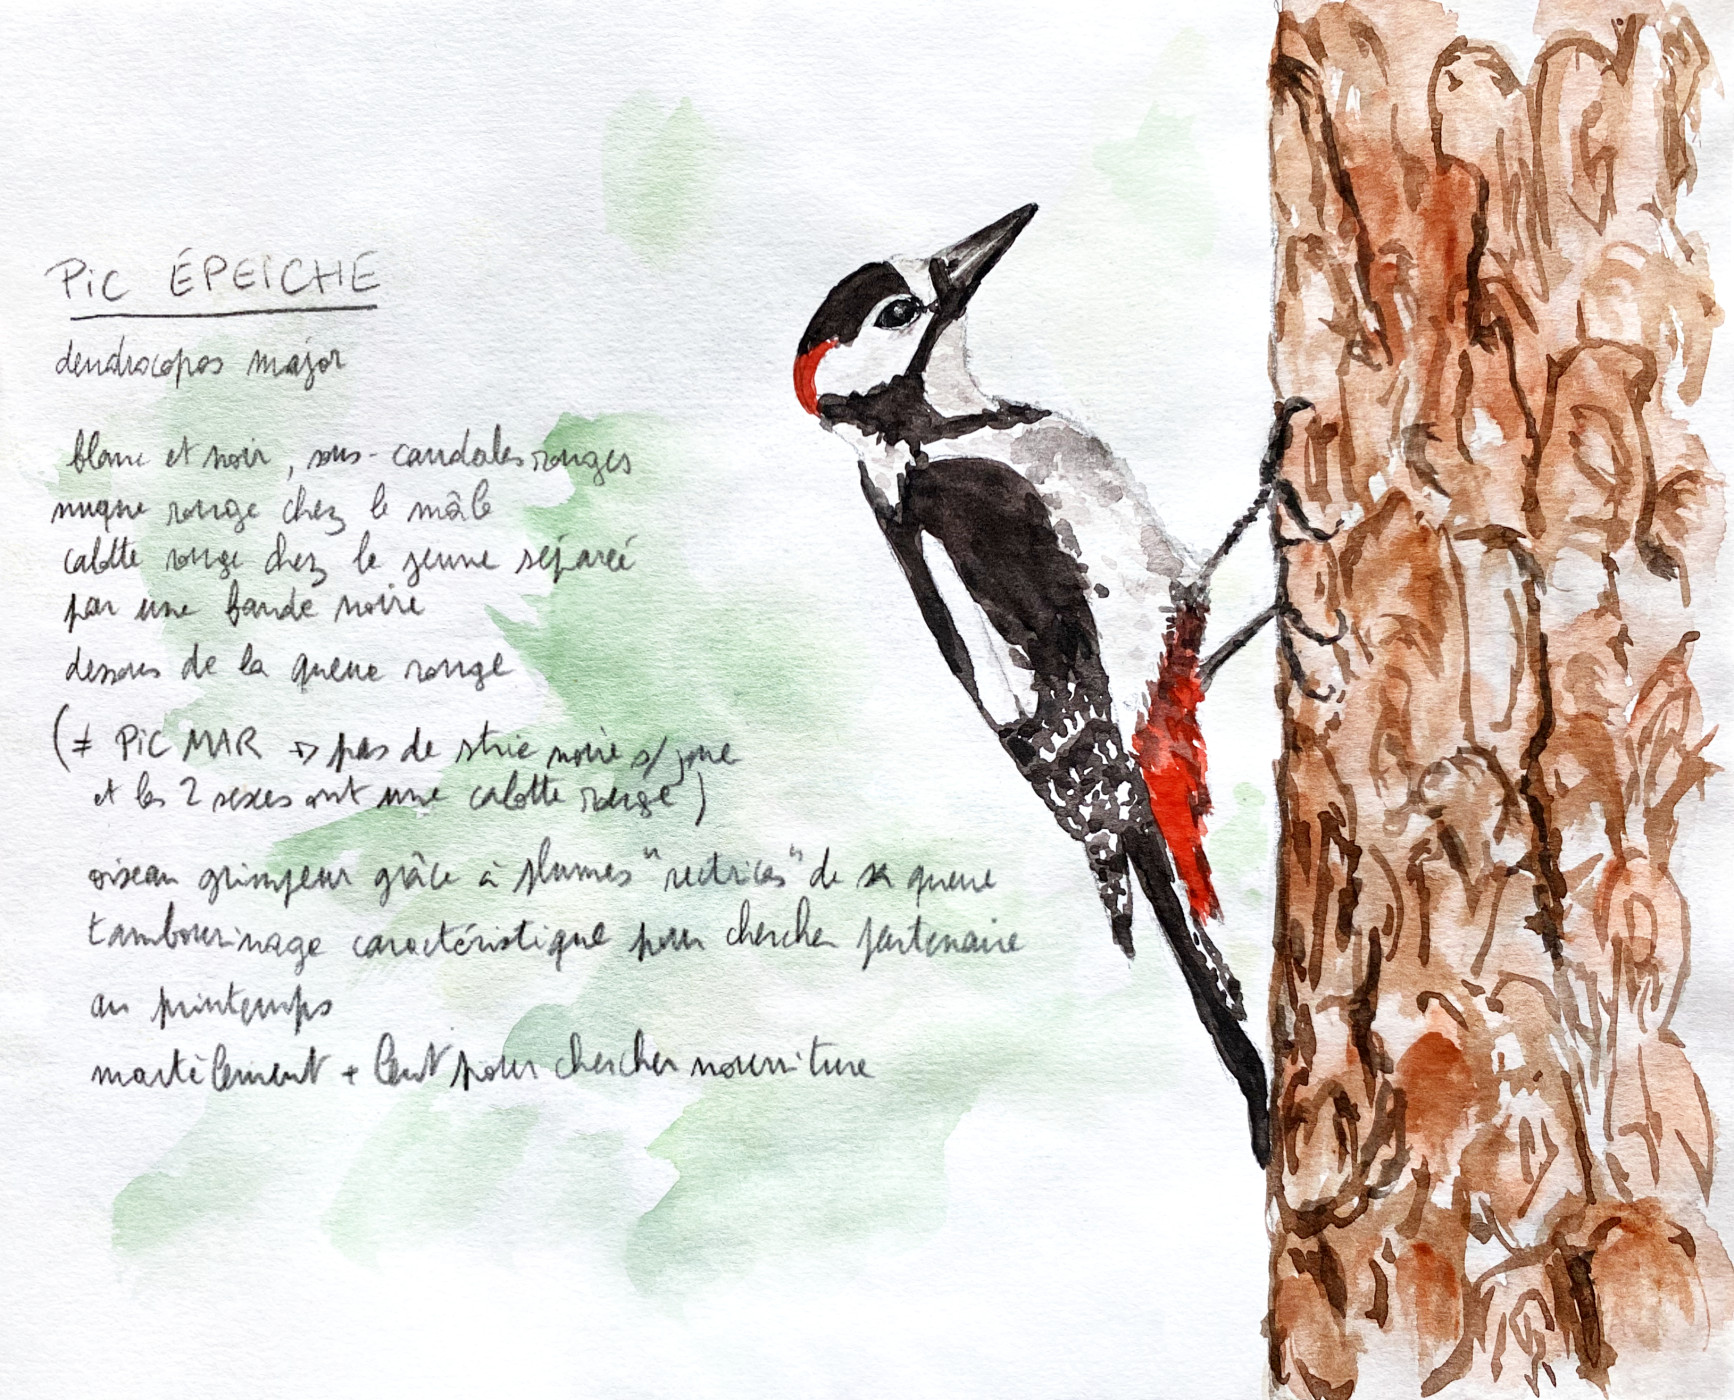 PIC ÉPEICHE
dendrocopos major
blanc et noir, sous-caudales rouges
nuque rouge chez le mâle
calotte rouge chez le jeune séparée
par une bande noire
dessous de la queue rouge
(≠ PIC MAR → pas de strie noire s/joue
et les 2 sexes ont une calotte rouge)
oiseau grimpeur grâce à plumes "rectrices" de sa queue
tambourinage caractéristique pour chercher partenaire
au printemps
martèlement + lent pour chercher nourriture